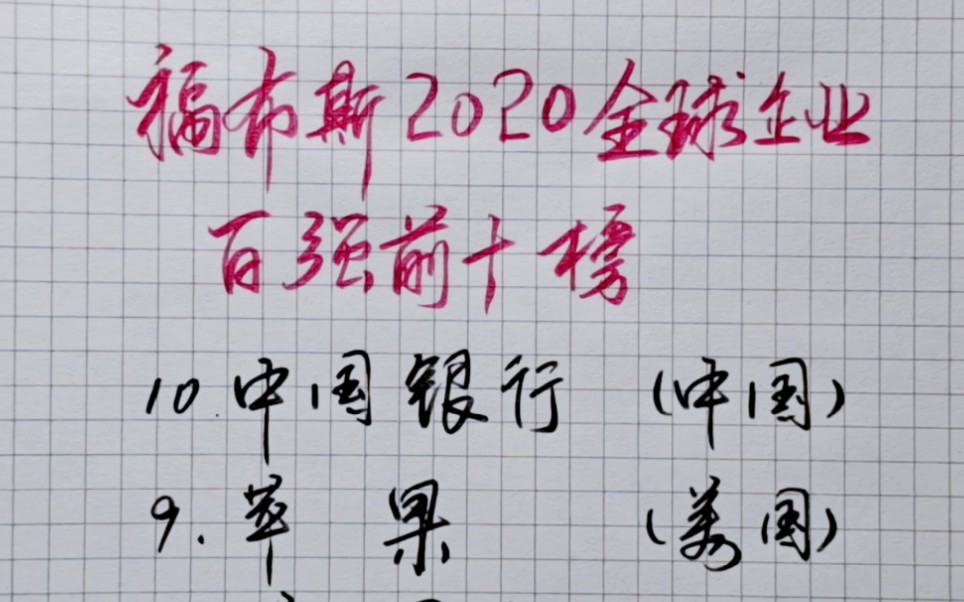 福布斯2020全球企业
百强前十榜
10.中国银行 (中国)
9.苹果 (美国)